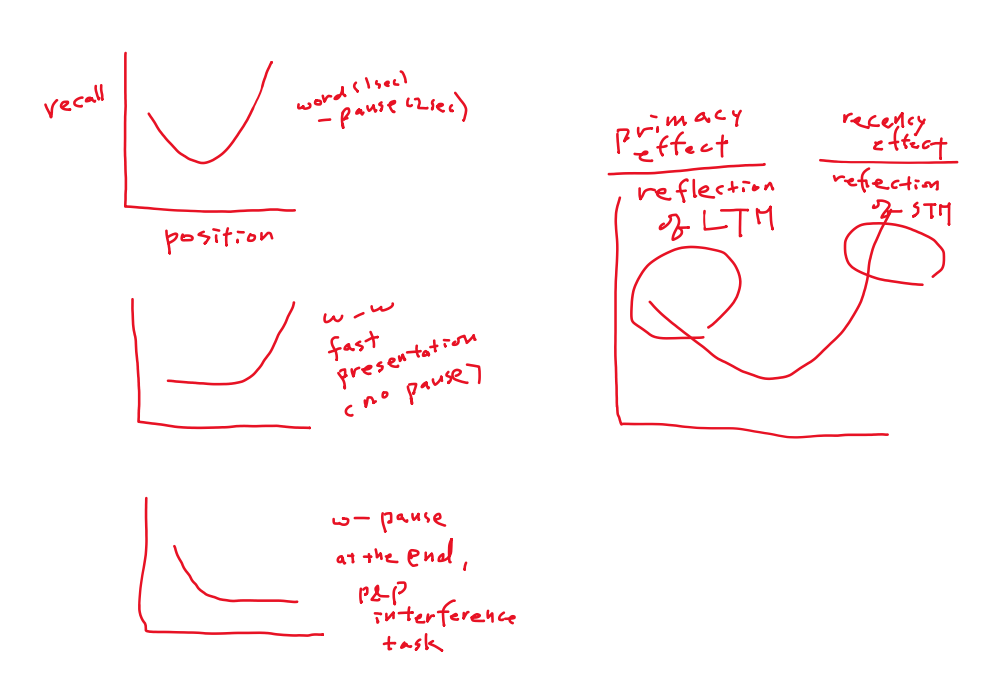 recall
word (1sec)
- pause (2sec)
position
w - w
fast
presentation
(no pause)
w - pause
at the end,
p&p
interference
task
primacy
effect
reflection
of LTM
recency
effect
reflection
of STM